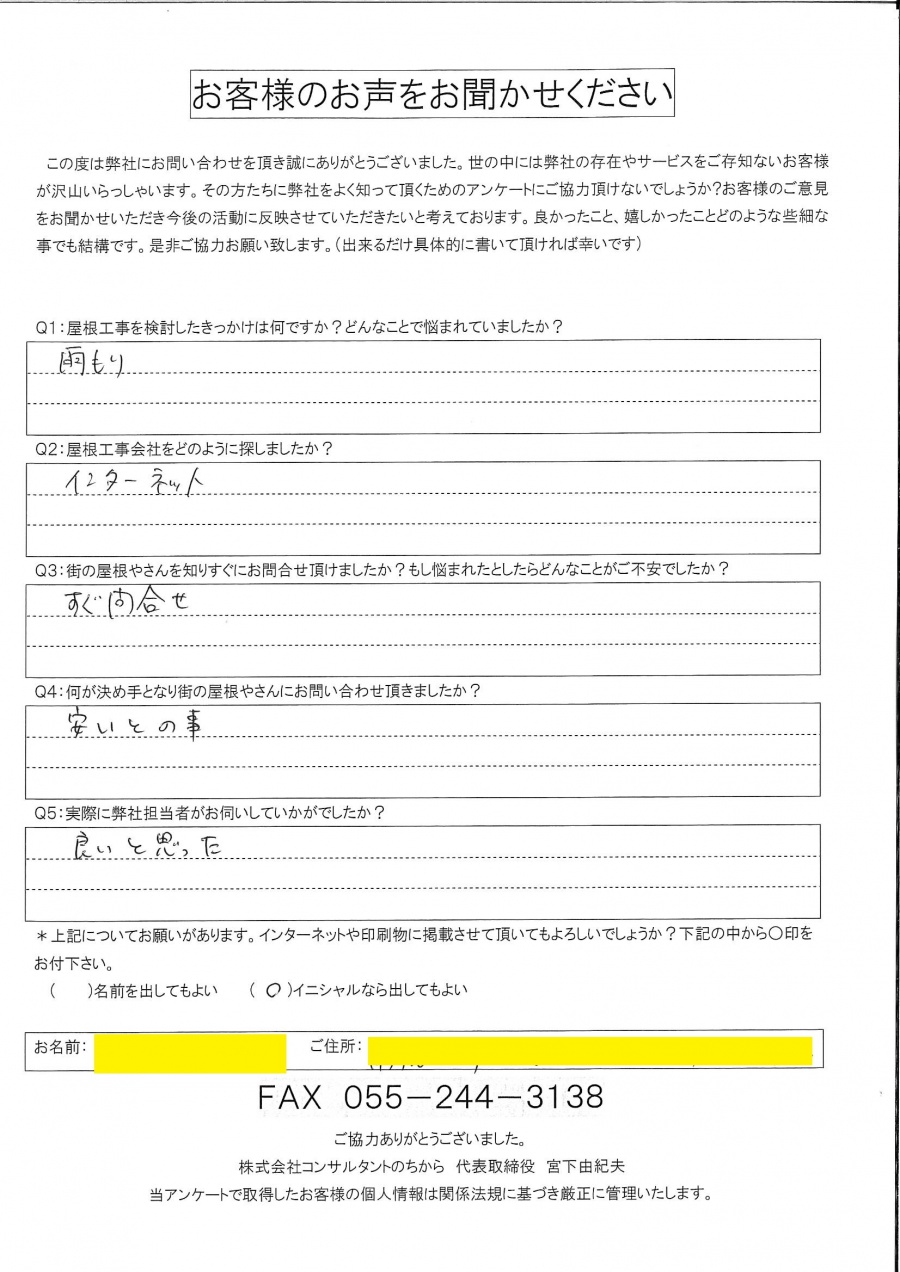 お客様のお声をお聞かせください
この度は弊社にお問い合わせを頂き誠にありがとうございました。世の中には弊社の存在やサービスをご存知ないお客様
が沢山いらっしゃいます。その方たちに弊社をよく知って頂くためのアンケートにご協力頂けないでしょうか?お客様のご意見
をお聞かせいただき今後の活動に反映させていただきたいと考えております。良かったこと、嬉しかったことどのような些細な
事でも結構です。是非ご協力お願い致します。(出来るだけ具体的に書いて頂ければ幸いです)
Q1:屋根工事を検討したきっかけは何ですか?どんなことで悩まれていましたか?
雨もり
Q2:屋根工事会社をどのように探しましたか?
インターネット
Q3:街の屋根やさんを知りすぐにお問合せ頂けましたか?もし悩まれたとしたらどんなことがご不安でしたか?
すぐ問合せ
Q4:何が決め手となり街の屋根やさんにお問い合わせ頂きましたか?
安いとの事
Q5:実際に弊社担当者がお伺いしていかがでしたか?
良いと思った
*上記についてお願いがあります。インターネットや印刷物に掲載させて頂いてもよろしいでしょうか?下記の中から〇印を
お付下さい。
( )名前を出してもよい (〇)イニシャルなら出してもよい
お名前: ご住所:
FAX 055-244-3138
ご協力ありがとうございました。
株式会社コンサルタントのちから 代表取締役 宮下由紀夫
当アンケートで取得したお客様の個人情報は関係法規に基づき厳正に管理いたします。